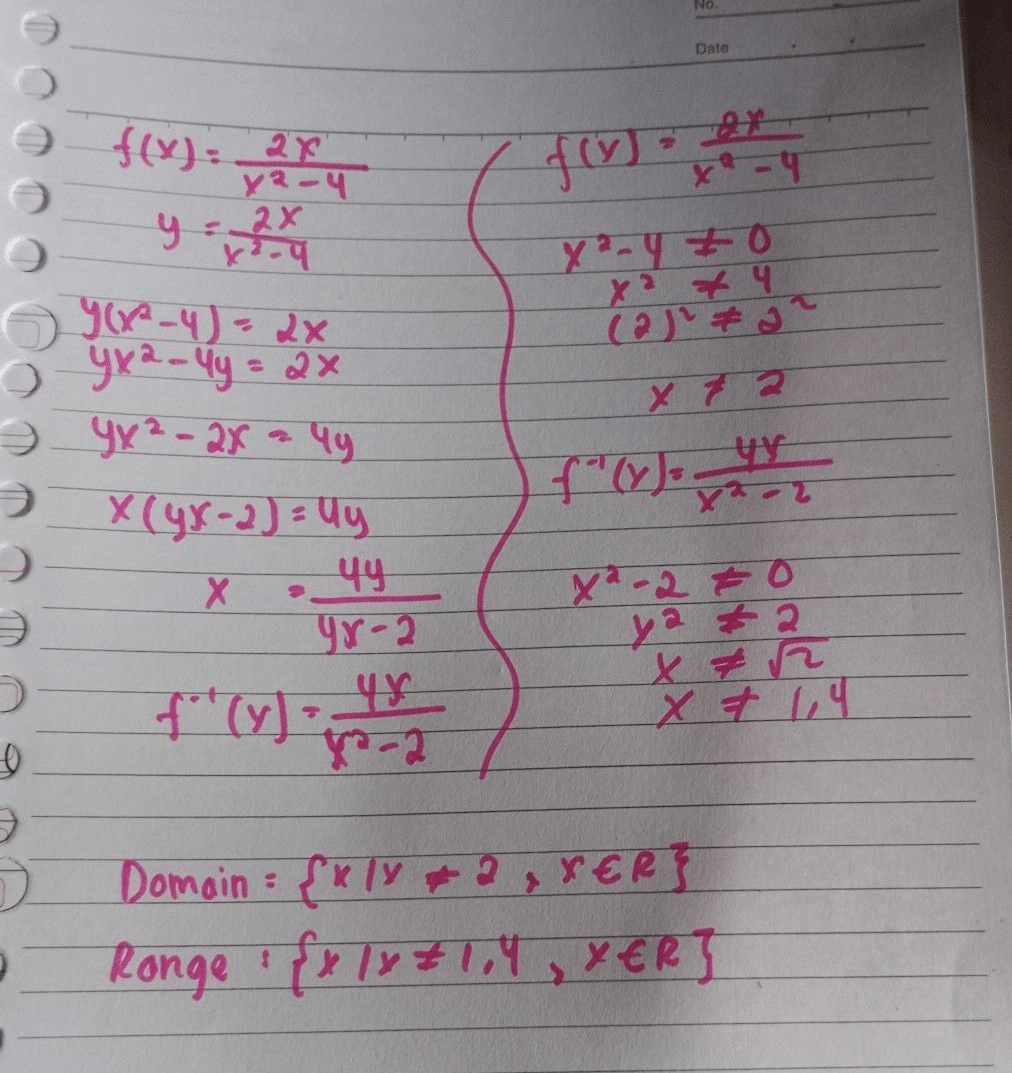 No.
Date
f(x) = 2x / x² - 4
y = 2x / x² - 4
y(x² - 4) = 2x
yx² - 4y = 2x
yx² - 2x = 4y
x(yx - 2) = 4y
x = 4y / yx - 2
f⁻¹(x) = 4x / x² - 2
f(x) = 2x / x² - 4
x² - 4 ≠ 0
x² ≠ 4
(2)² ≠ 2²
x ≠ 2
f⁻¹(x) = 4x / x² - 2
x² - 2 ≠ 0
x² ≠ 2
x ≠ √2
x ≠ 1,4
Domain = {x | x ≠ 2, x ∈ R}
Range : {x | x ≠ 1,4, x ∈ R}